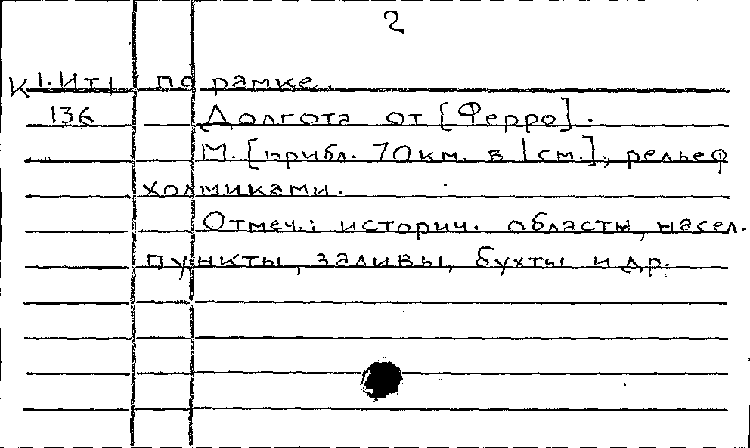 2
К 1.Ит1 по рамке.
136 Долгота от [Ферро].
М. [прибл. 70 км. в 1 см.], рельеф
холмиками.
Отмеч.: историч. области, насел.
пункты, заливы, бухты и др.